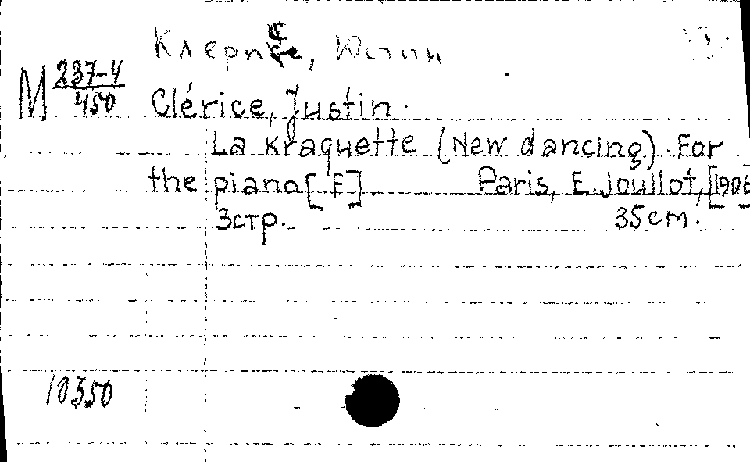 Клерис, Юстин
M 237-4/450 Clérice, Justin.
La Kraquette (New dancing). For
the piano [F] Paris, E. Joullot, [1906
3стр. 35 cm.
10350